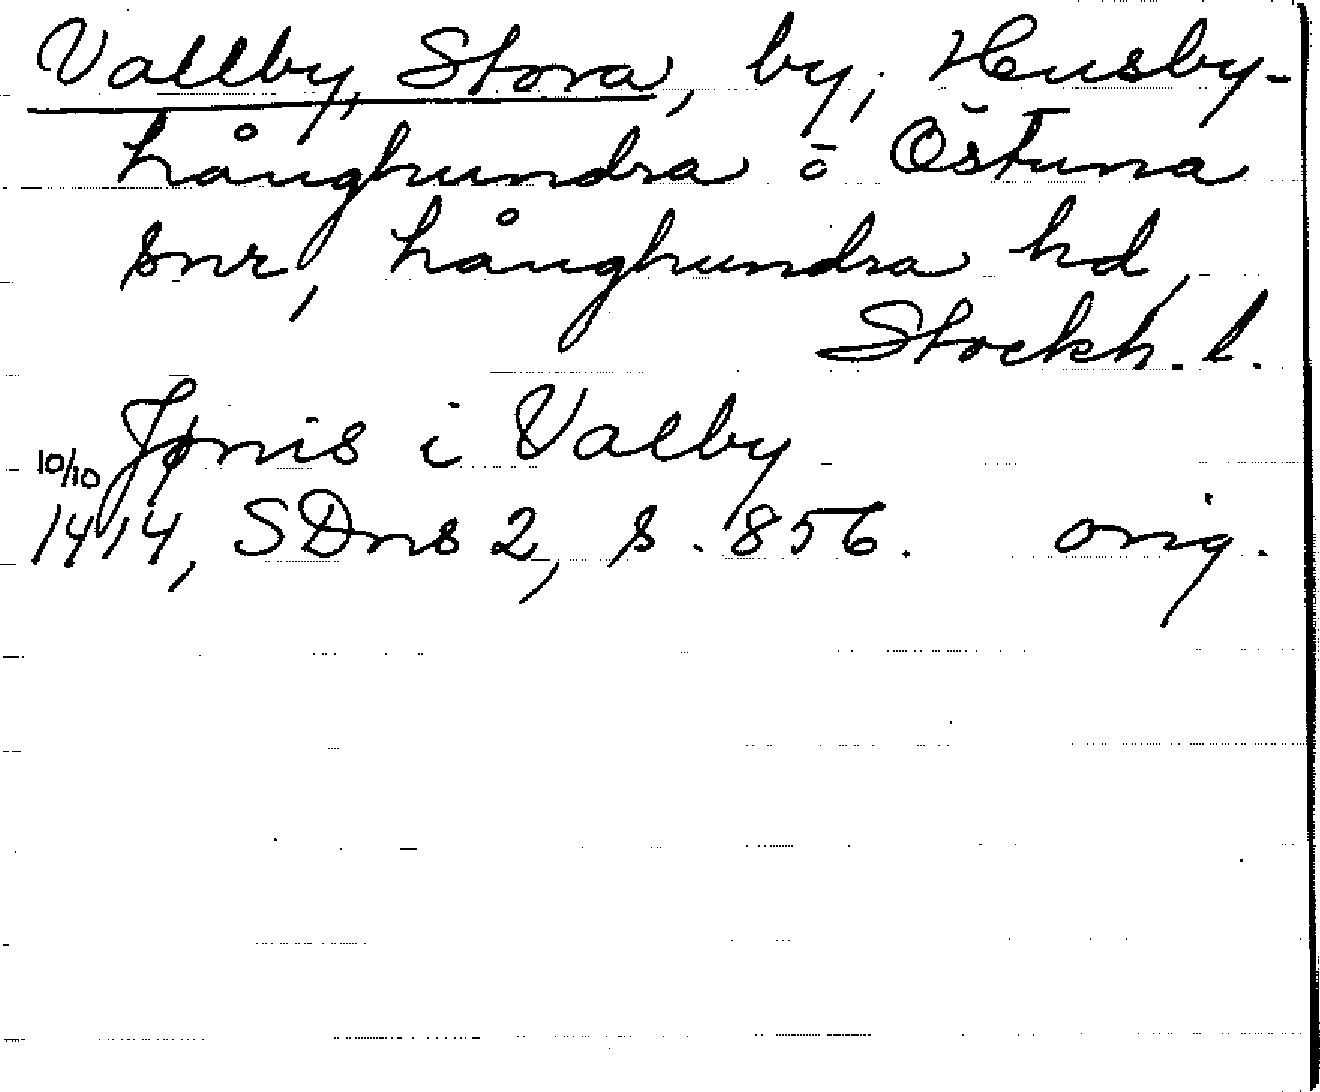 Vallby, Stora, by, Husby-
långhundra o Östuna
snr, långhundra hd,
Stockh. l.
Jønis i Valby
10/10
1414, SDns 2, s. 856. orig.